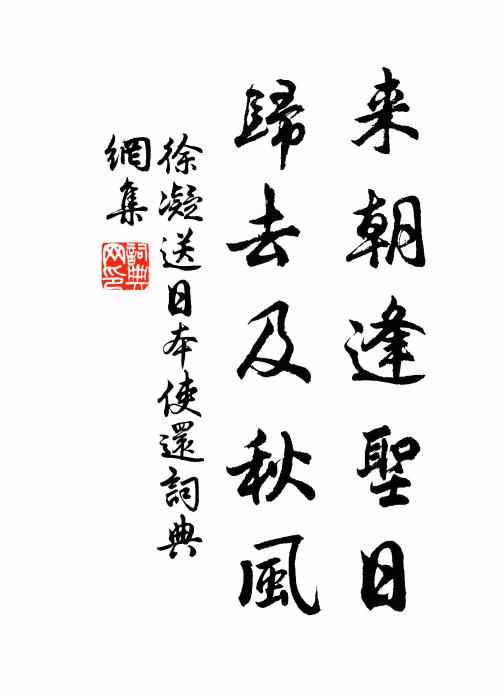 来朝逢聖日
歸去及秋風
徐凝送日本使還詞典
網集
詞典网印